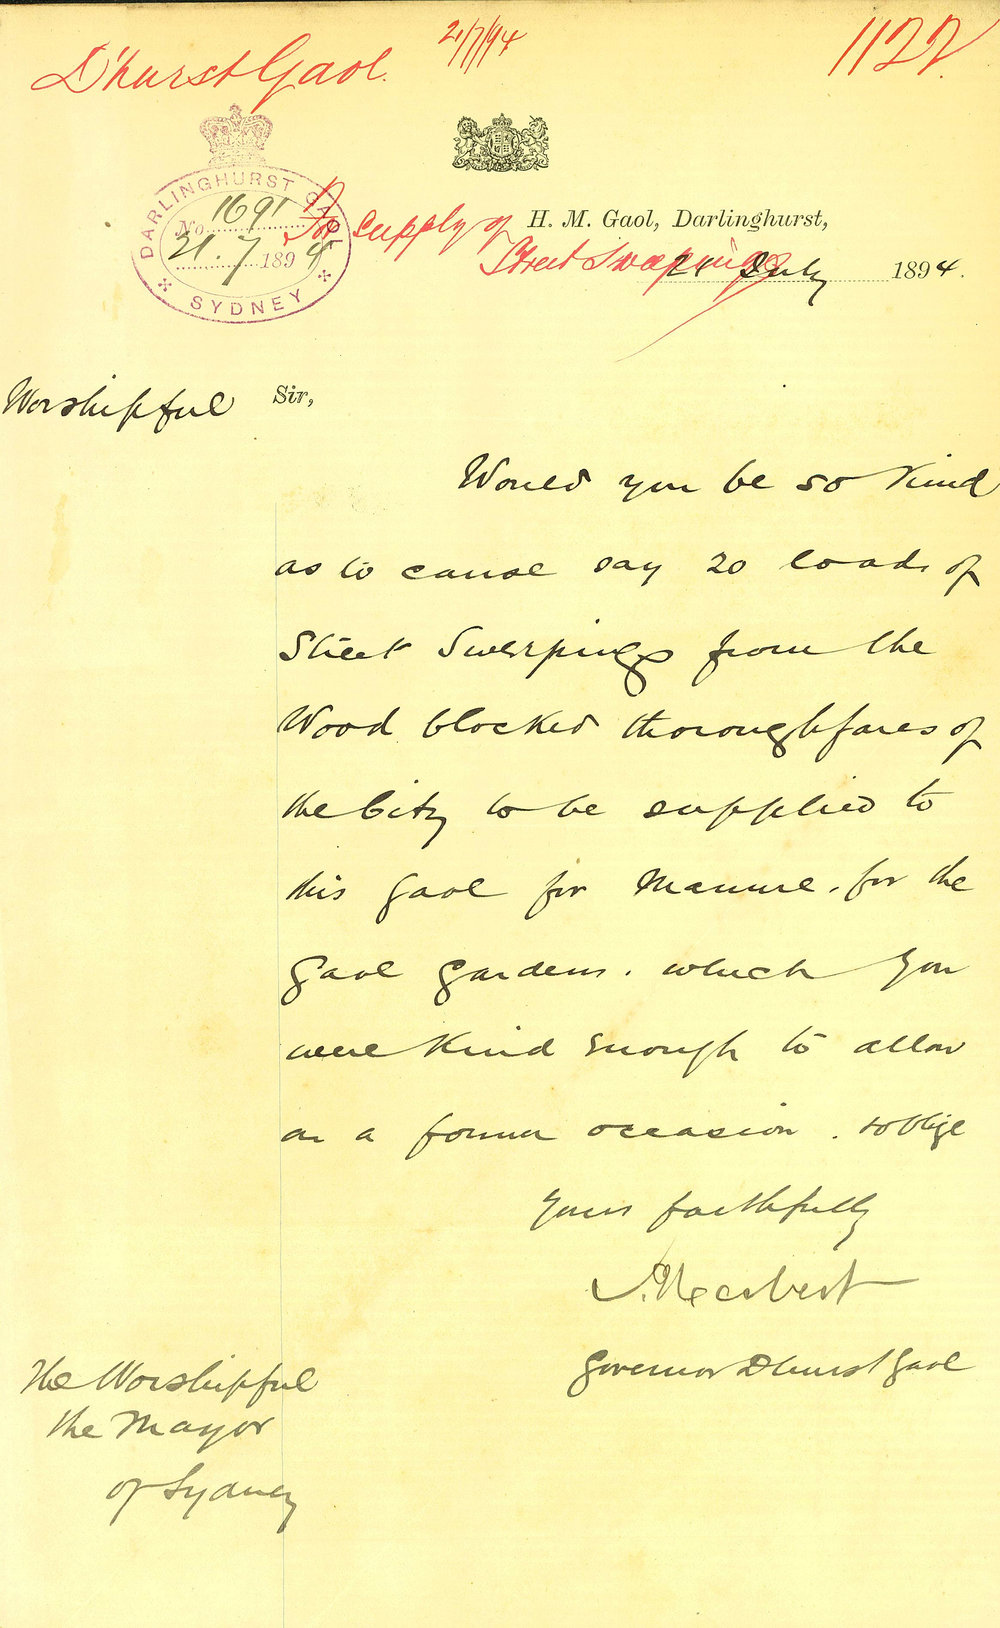 D'hurst Gaol.
21/7/94
1122
DARLINGHURST GAOL
No 1691
21.7.1894
SYDNEY
For supply of
Street Sweepings
H. M. Gaol, Darlinghurst,
21 July 1894.
Worshipful Sir,
Would you be so kind
as to cause say 20 loads of
Street Sweepings from the
Wood blocked thoroughfares of
the City to be supplied to
this Gaol for Manure. for the
Gaol Gardens. which you
were kind enough to allow
on a former occasion. & oblige
Yours faithfully
Herbert
Governor Dhurst Gaol
The Worshipful
the Mayor
of Sydney